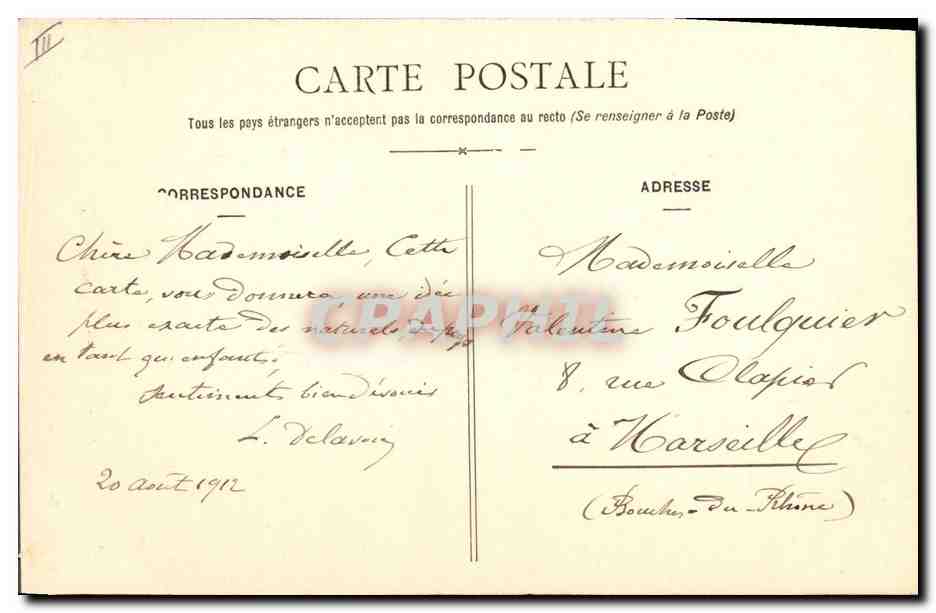 III
CARTE POSTALE
Tous les pays étrangers n'acceptent pas la correspondance au recto (Se renseigner à la Poste)
CORRESPONDANCE
Chère Mademoiselle, Cette
carte, vous donnera une idée
plus exacte des naturels du pays
en tant qu'enfants,
Sentiments bien dévoués
20 août 1912
ADRESSE
Mademoiselle
Valentine Foulquier
8, rue Clapier
à Marseille
(Bouches-du-Rhône)
CPAPHIL